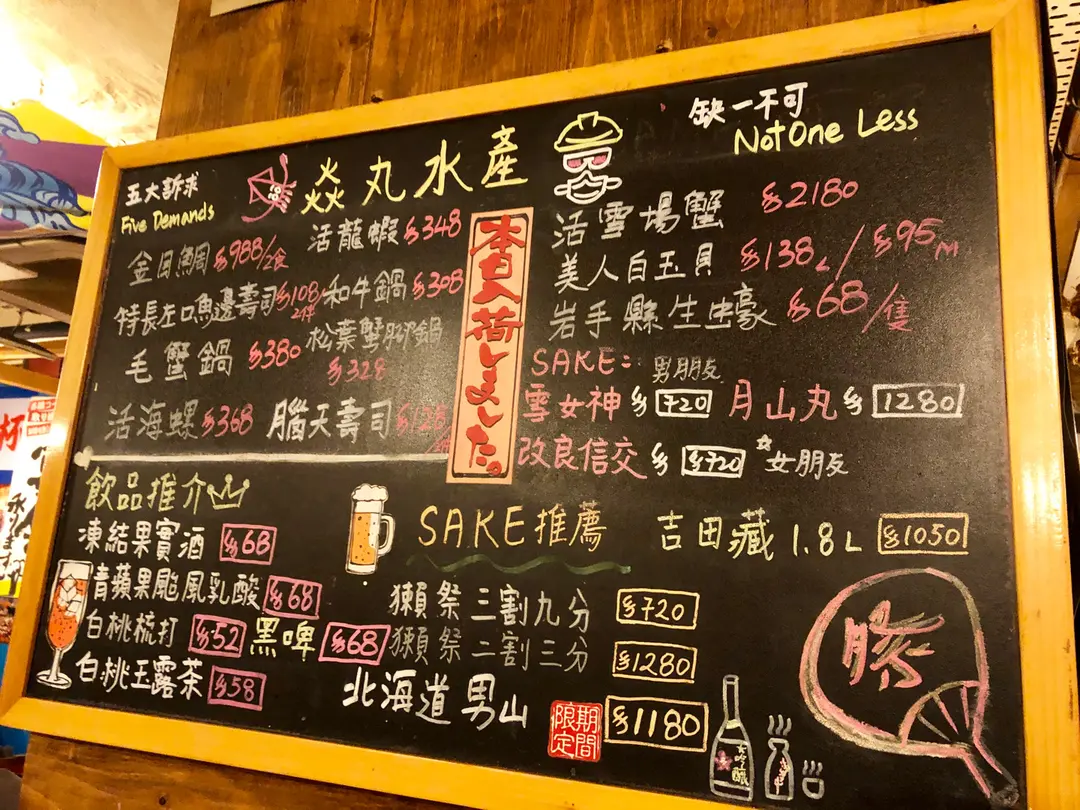 五大訴求
Five Demands
焱丸水產
缺一不可
Not One Less
金目鯛 $988/2食
活龍蝦 $348
特長左口魚邊壽司 $108/2件
和牛鍋 $308
毛蟹鍋 $380
松葉蟹腳鍋 $328
活海螺 $368
腦天壽司 $128
本日入荷しました。
活雪場蟹 $2180
美人白玉貝 $138L/$95M
岩手縣生蠔 $68/隻
SAKE: 男朋友
雪女神 $720 月山丸 $1280
改良信交 $720 *女朋友
飲品推介
凍結果實酒 $68
青蘋果颱風乳酸 $68
白桃梳打 $52 黑啤 $68
白桃玉露茶 $58
SAKE推薦
吉田藏 1.8L $1050
獺祭三割九分 $720
獺祭二割三分 $1280
北海道男山 期間限定 $1180
大吟釀
勝
杯